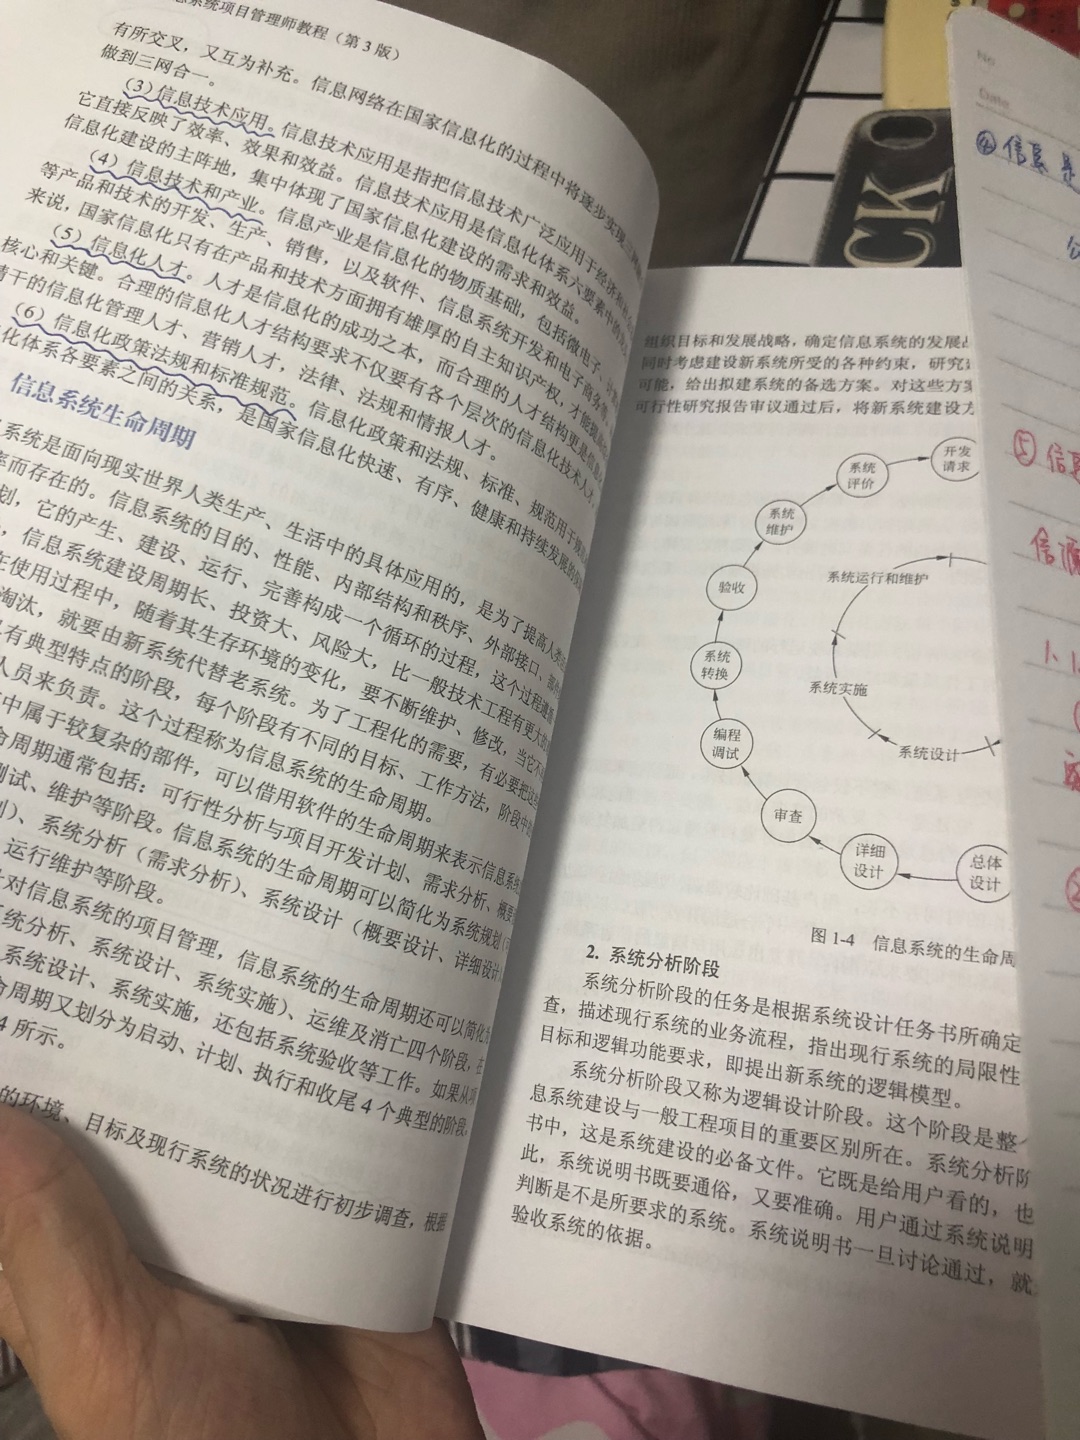 息系统项目管理师教程（第3版）
有所交叉，又互为补充。信息网络在国家信息化的过程中将逐步实现
做到三网合一。
（3）信息技术应用。信息技术应用是指把信息技术广泛应用于经济和社
它直接反映了效率、效果和效益。信息技术应用是信息化体系六要素中的
信息化建设的主阵地，集中体现了国家信息化建设的需求和效益。
（4）信息技术和产业。信息产业是信息化的物质基础，包括微电子、
等产品和技术的开发、生产、销售，以及软件、信息系统开发和电子商务等。
来说，国家信息化只有在产品和技术方面拥有雄厚的自主知识产权，才能提高
（5）信息化人才。人才是信息化的成功之本，而合理的人才结构更是信息
核心和关键。合理的信息化人才结构要求不仅要有各个层次的信息化技术人才，
精干的信息化管理人才、营销人才，法律、法规和情报人才。
（6）信息化政策法规和标准规范。信息化政策和法规、标准、规范用于规范
化体系各要素之间的关系，是国家信息化快速、有序、健康和持续发展的
信息系统生命周期
系统是面向现实世界人类生产、生活中的具体应用的，是为了提高人类
率而存在的。信息系统的目的、性能、内部结构和秩序、外部接口、部件
划，它的产生、建设、运行、完善构成一个循环的过程，这个过程遵循
，信息系统建设周期长、投资大、风险大，比一般技术工程有更大的
在使用过程中，随着其生存环境的变化，要不断维护、修改，当它不
淘汰，就要由新系统代替老系统。为了工程化的需要，有必要把这些
有典型特点的阶段，每个阶段有不同的目标、工作方法，阶段中的
人员来负责。这个过程称为信息系统的生命周期。
中属于较复杂的部件，可以借用软件的生命周期来表示信息系统
命周期通常包括：可行性分析与项目开发计划、需求分析、概要
测试、维护等阶段。信息系统的生命周期可以简化为系统规划（可
）、系统分析（需求分析）、系统设计（概要设计、详细设计
运行维护等阶段。
对信息系统的项目管理，信息系统的生命周期还可以简化为
系统分析、系统设计、系统实施）、运维及消亡四个阶段，在
系统设计、系统实施，还包括系统验收等工作。如果从项
命周期又划分为启动、计划、执行和收尾4个典型的阶段。
4所示。
的环境、目标及现行系统的状况进行初步调查，根据
组织目标和发展战略，确定信息系统的发展
同时考虑建设新系统所受的各种约束，研究
可能，给出拟建系统的备选方案。对这些方案
可行性研究报告审议通过后，将新系统建设方
开发
请求
系统
评价
系统
维护
验收
系统
转换
编程
调试
审查
详细
设计
总体
设计
系统运行和维护
系统实施
系统设计
图1-4 信息系统的生命周
2. 系统分析阶段
系统分析阶段的任务是根据系统设计任务书所确定
查，描述现行系统的业务流程，指出现行系统的局限性
目标和逻辑功能要求，即提出新系统的逻辑模型。
系统分析阶段又称为逻辑设计阶段。这个阶段是整
息系统建设与一般工程项目的重要区别所在。系统分析阶
书中，这是系统建设的必备文件。它既是给用户看的，也
此，系统说明书既要通俗，又要准确。用户通过系统说明
判断是不是所要求的系统。系统说明书一旦讨论通过，就
验收系统的依据。
CK
No
Date
④信息是
⑤信息